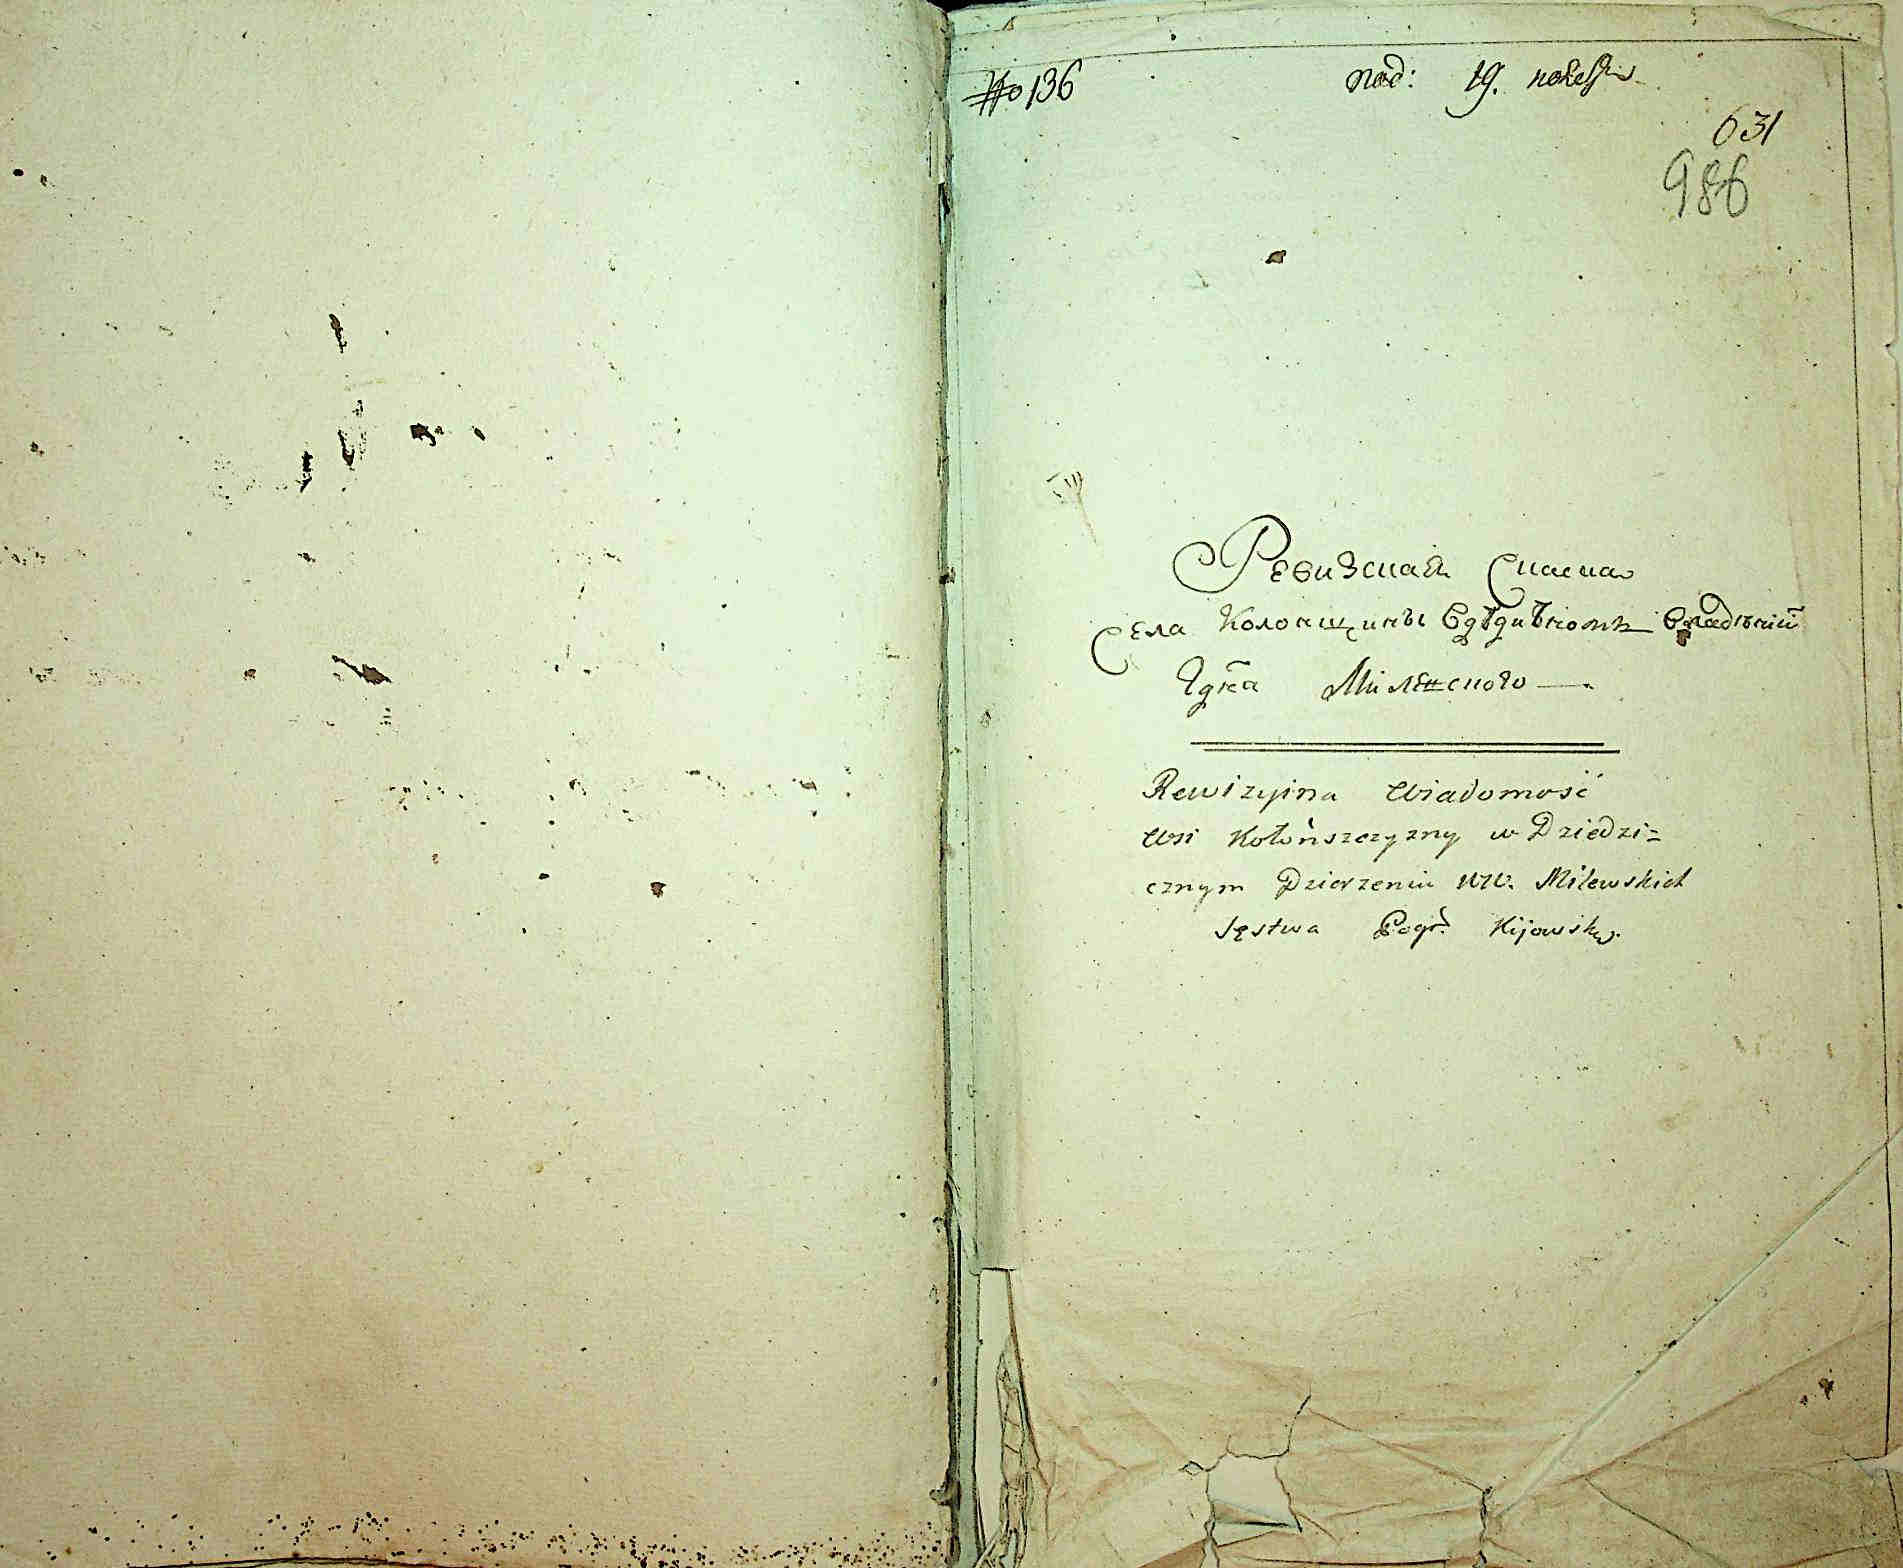 № 136
под: 19. ноября
631
986
Ревизская Скаска
Села Колонщины
Милевского
Rewizyina Wiadomość
Wsi Kołońszczyzny w Dziedzi=
cznym Dzierzeniu WW. Milewskich
Sęstwa Pogr: Kijowskg.